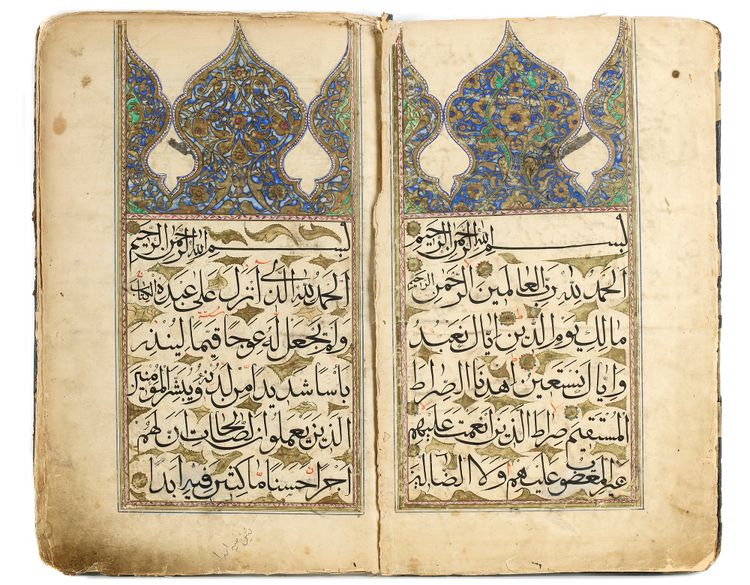 بسم الله الرحمن الرحيم
الحمد لله رب العالمين الرحمن الرحيم
مالك يوم الدين اياك نعبد
واياك نستعين اهدنا الصراط
المستقيم صراط الذين انعمت عليهم
غير المغضوب عليهم ولا الضالين
بسم الله الرحمن الرحيم
الحمد لله الذي أنزل على عبده الكتاب
ولم يجعل له عوجا قيما لينذر
بأسا شديدا من لدنه ويبشر المؤمنين
الذين يعملون الصالحات ان لهم
اجرا حسنا ماكثين فيه ابدا